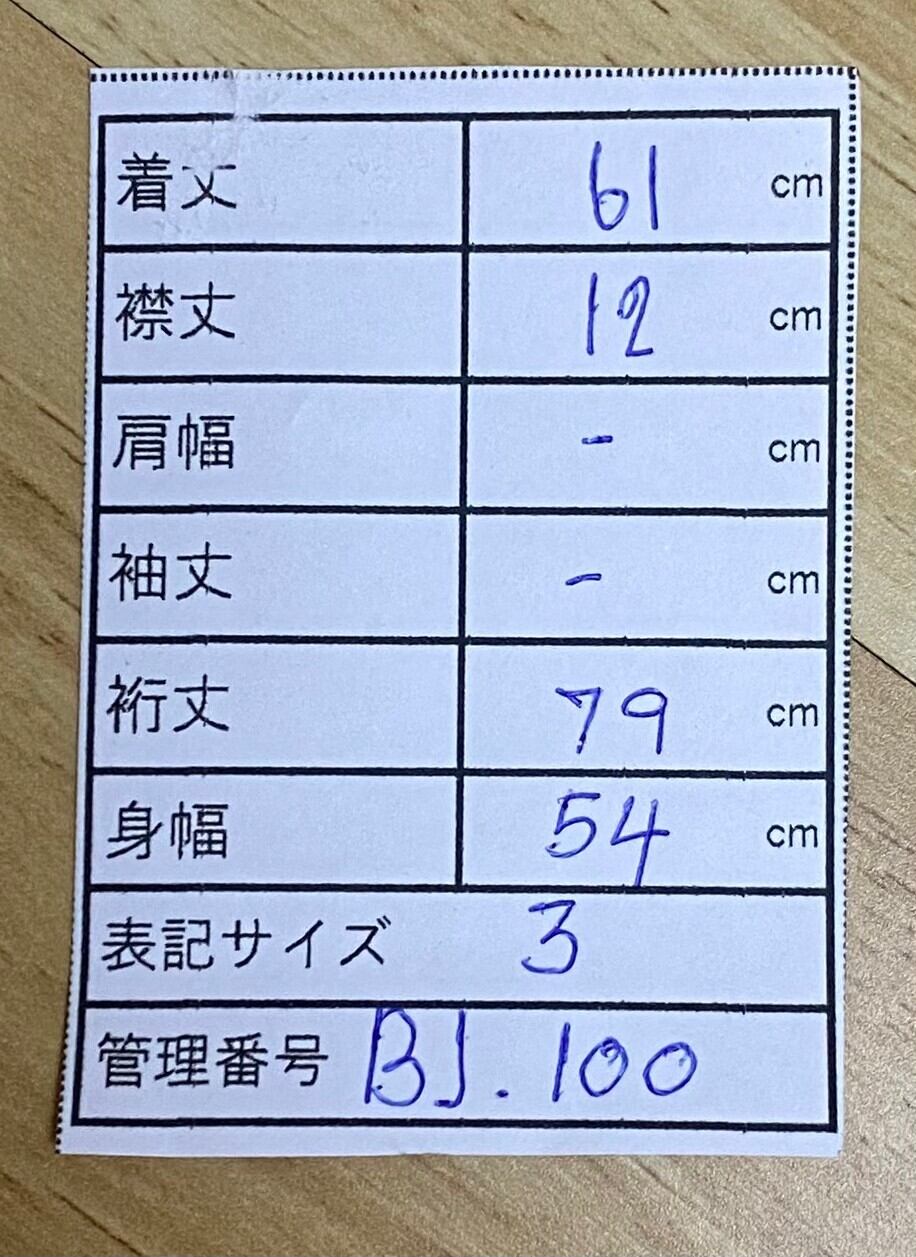 着丈 61 cm
襟丈 12 cm
肩幅 - cm
袖丈 - cm
裄丈 79 cm
身幅 54 cm
表記サイズ 3
管理番号 BJ.100